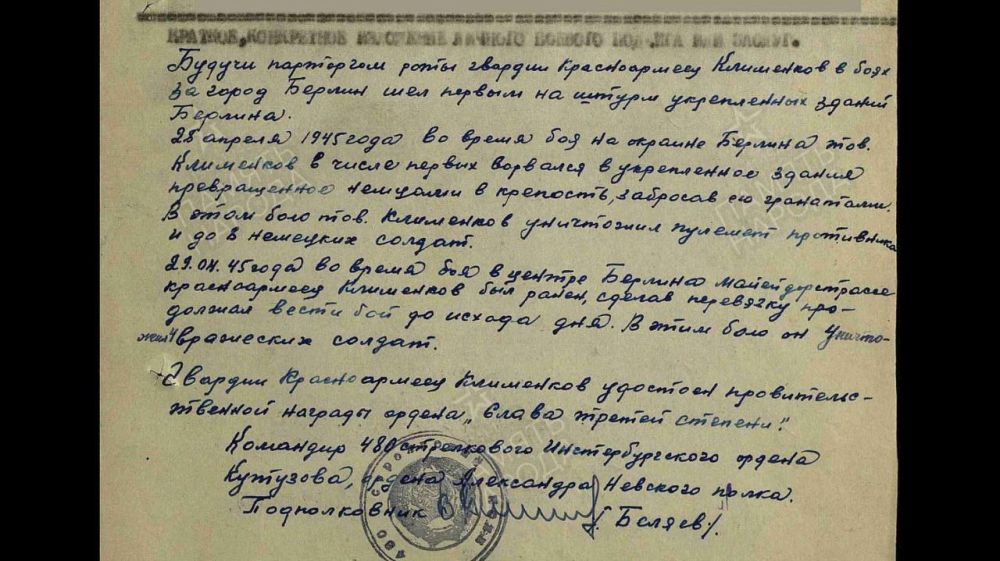 КРАТКОЕ, КОНКРЕТНОЕ ИЗЛОЖЕНИЕ ЛИЧНОГО БОЕВОГО ПОДВИГА ИЛИ ЗАСЛУГ.
Будучи парторгом роты гвардии красноармеец Клименков в боях
за город Берлин шел первым на штурм укрепленных зданий
Берлина.
28 апреля 1945 года во время боя на окраине Берлина тов.
Клименков в числе первых ворвался в укрепленное здания
превращенное немцами в крепость, забросав ею гранатами.
В этом бою тов. Клименков уничтожил пулемет противника
и до 8 немецких солдат.
29.04.45 года во время боя в центре Берлина
красноармеец Клименков был ранен, сделав перевязку про-
должал вести бой до исхода дня. В этим бою он уничто-
жил 4 вражеских солдат.
Гвардии Красноармеец Клименков удостоен провительс-
твенной награды ордена „Слава третей степени".
Командир 480 стрелкового Инстербургского ордена
Кутузова, ордена Александра Невского полка.
Подполковник /Беляев/.
ПАМЯТЬ НАРОДА